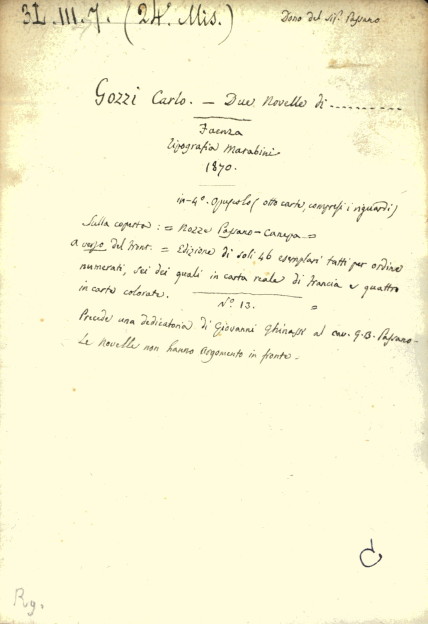 3L.III.7. (24ª Mis.)
Dono del Sigr. Passano
Gozzi Carlo. — Due Novelle di ..........
Faenza
Tipografia Marabini
1870.
in-4º. Opuscolo (otto carte, compresi i riguardi)
Sulla coperta: = Nozze Passano-Canepa =
A verso del front. = Edizione di soli 46 esemplari tutti per ordine
numerati, sei dei quali in carta reale di Francia e quattro
in carta colorata.
Nº 13. =
Precede una dedicatoria di Giovanni Ghinassi al cav. G. B. Passano.
Le Novelle non hanno argomento in fronte.
Rg.